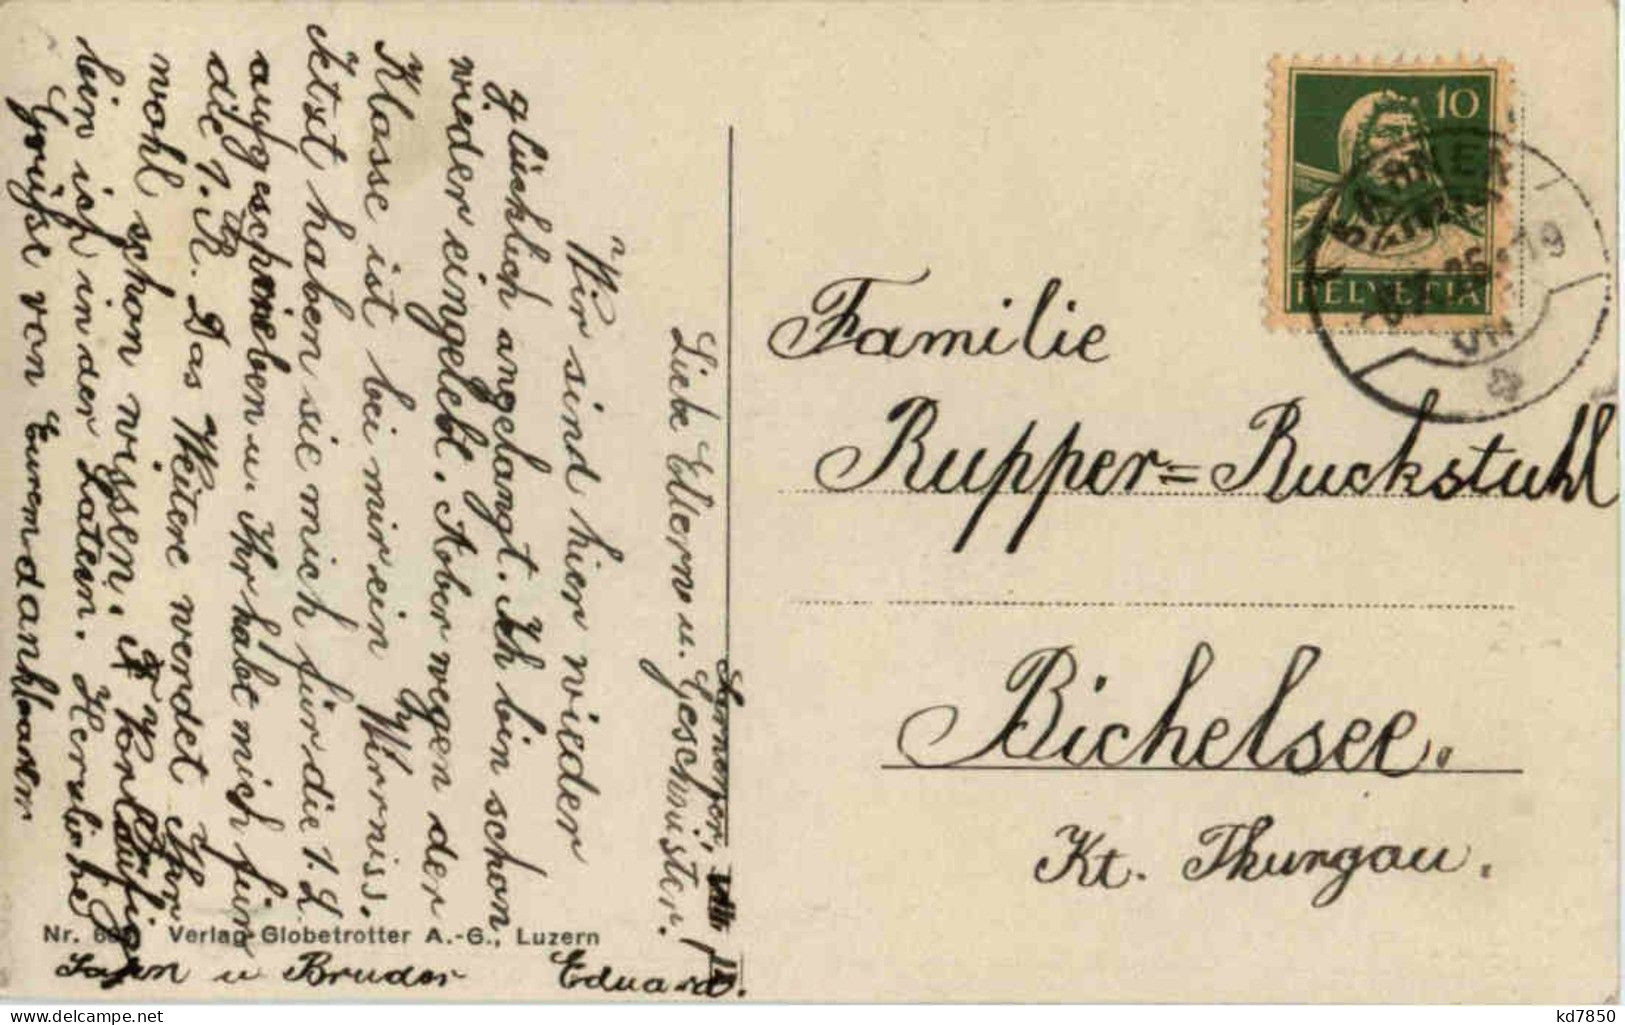 Liebe Eltern u. Geschwister.
Wir sind hier wieder
glücklich angelangt. Ich bin schon
wieder eingelebt. Aber wegen der
Klasse ist bei mir ein Wirrniss.
Jetzt haben sie mich für die 1. L
aufgeschrieben u. Ihr habt mich für
die 1. R. Das Weitere werdet Ihr
wohl schon wissen. Vorläufig
bin ich in der Latein. Herzliche
Grüsse von Eurem dankbaren
u Bruder Eduard.
Familie
Rupper=Ruckstuhl
Bichelsee.
Kt. Thurgau.
10
HELVETIA
Nr. Verlag Globetrotter A.-G., Luzern
kd7850